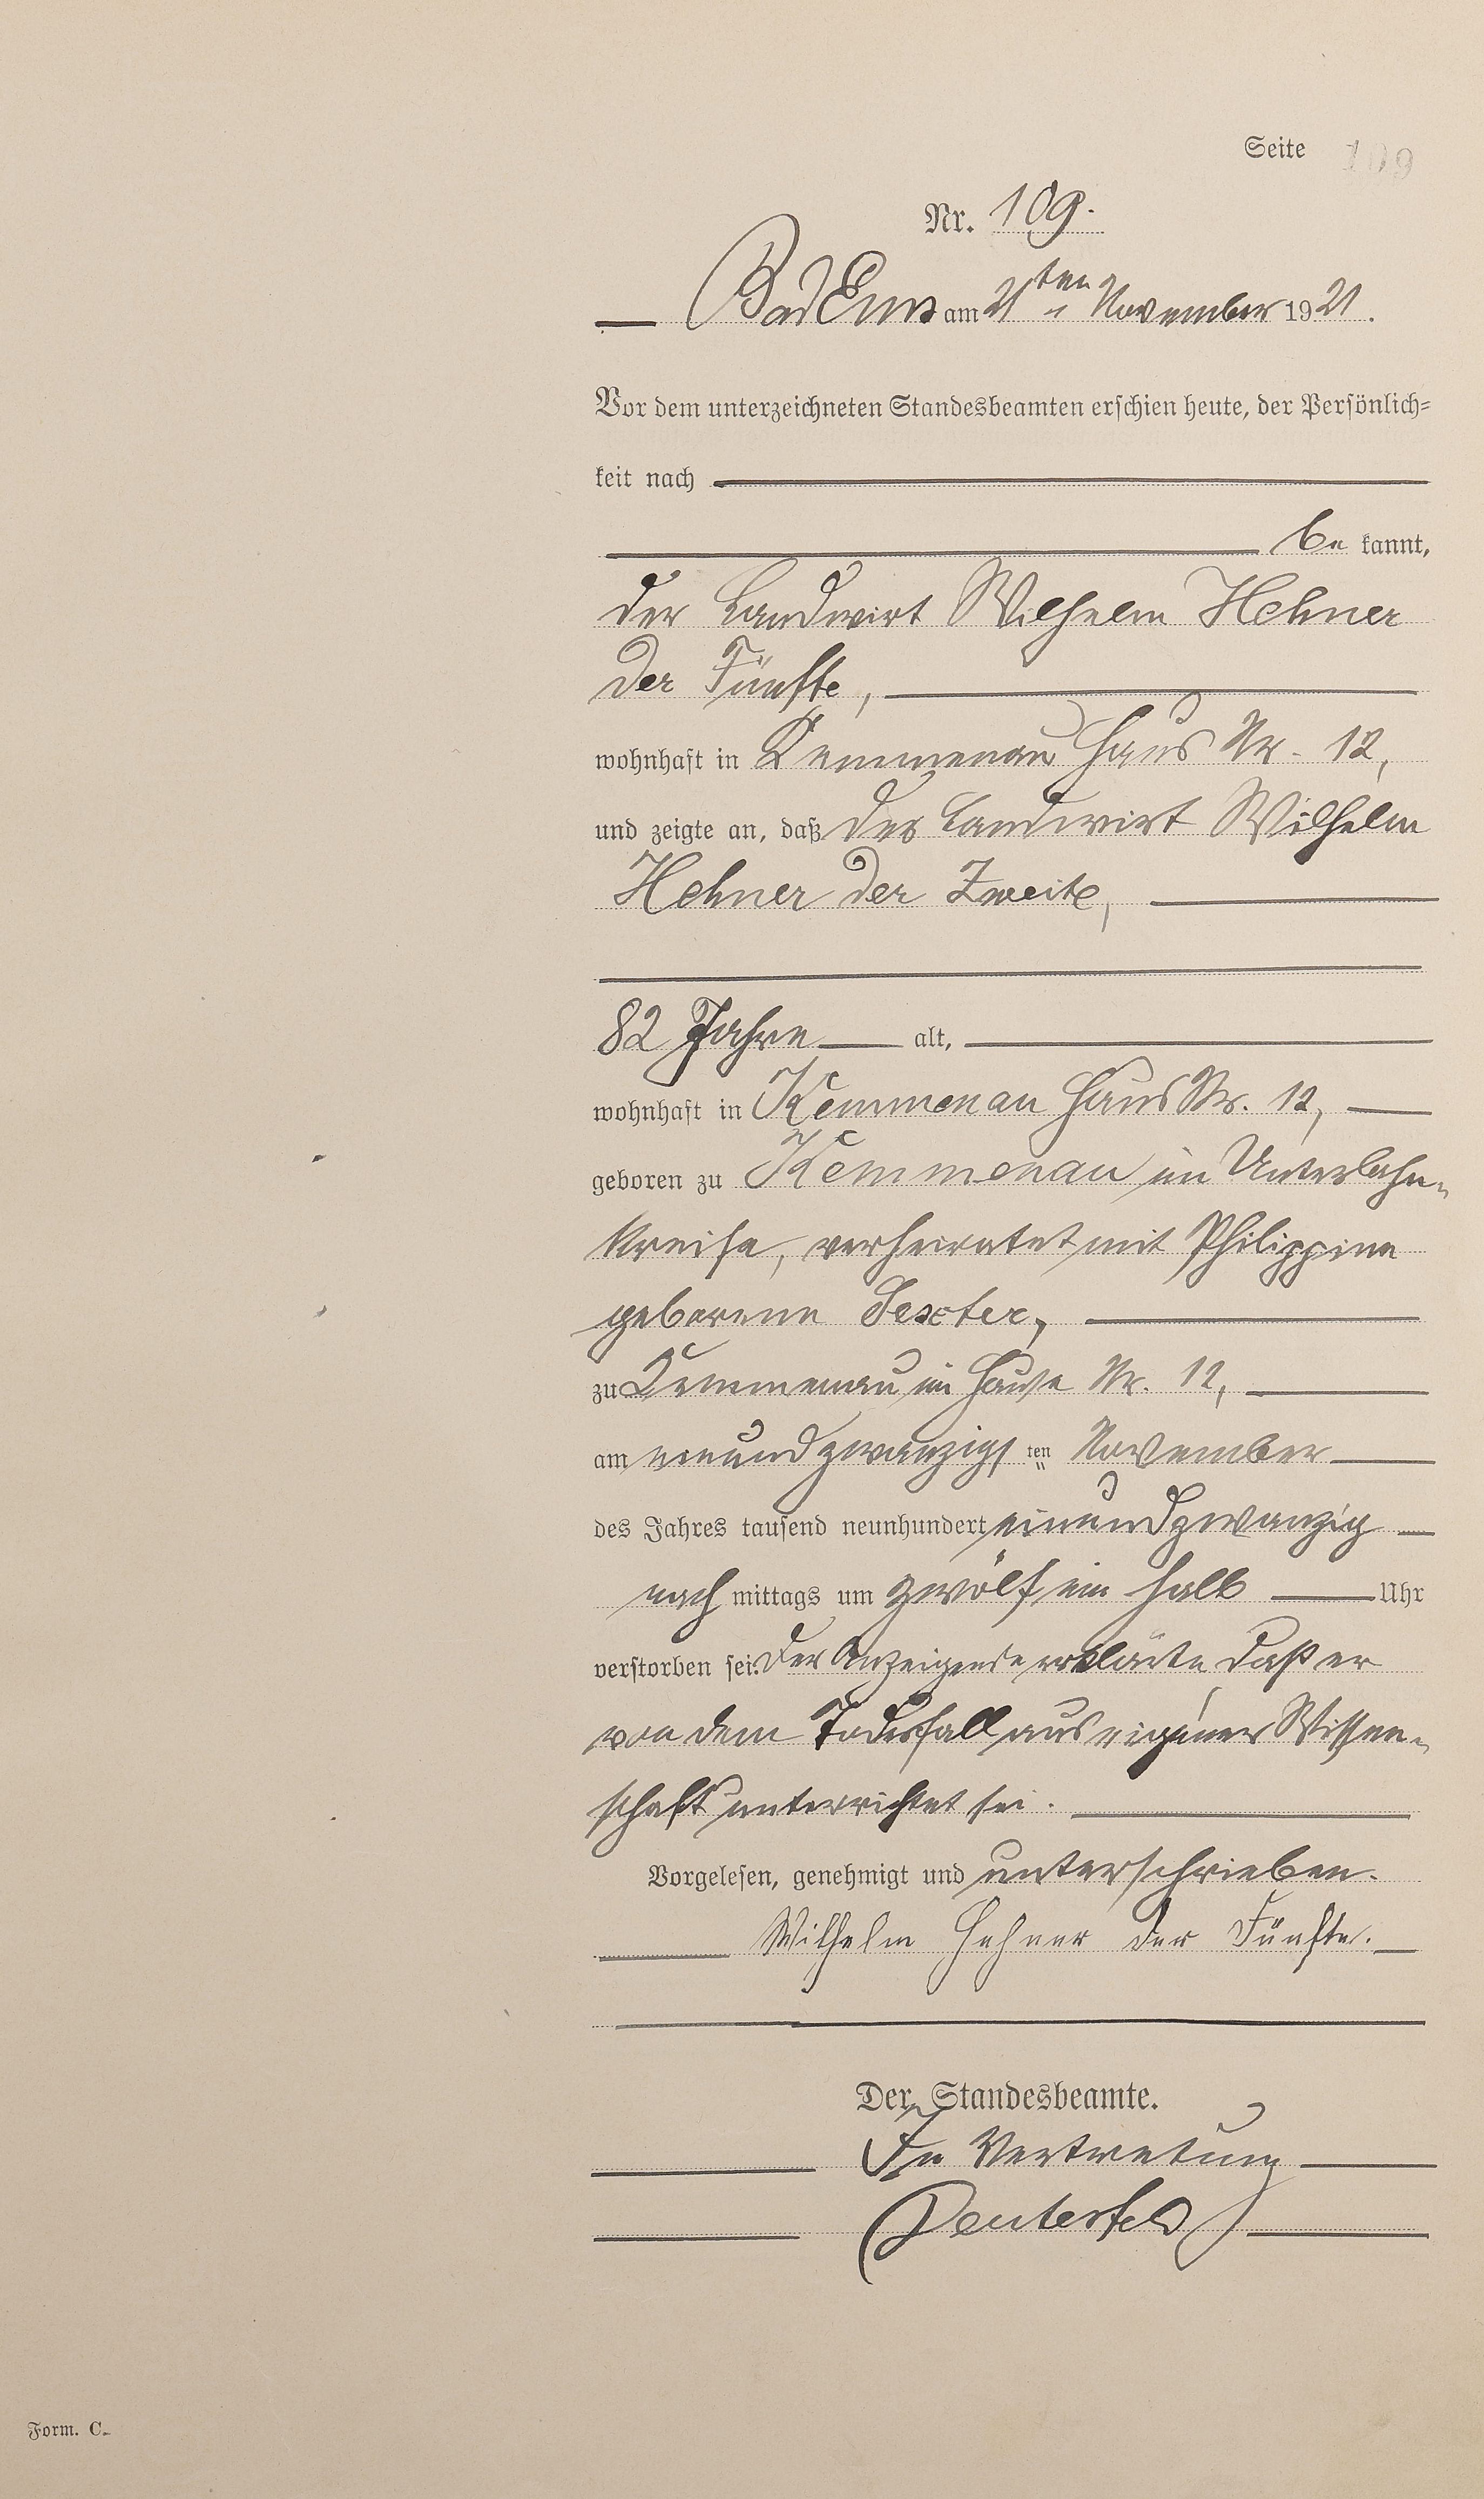 Seite 109
Nr. 109.
Bad Ems am 21ten November 1921.
Vor dem unterzeichneten Standesbeamten erschien heute, der Persönlich-
keit nach
be kannt,
der Landwirt Wilhelm Hehner
der Fünfte,
wohnhaft in Kemmenau Haus Nr. 12,
und zeigte an, daß der Landwirt Wilhelm
Hehner der Zweite,
82 Jahre alt,
wohnhaft in Kemmenau Haus Nr. 12,
geboren zu Kemmenau im Unterlahn-
kreise, verheiratet mit Philippine
geborene Sexter,
zu Kemmenau im Hause Nr. 12,
am ten November
des Jahres tausend neunhundert einundzwanzig
nach mittags um zwölf ein halb Uhr
verstorben sei. Der Anzeigende erklärte, daß er
von dem Todesfall aus eigener Wissen-
schaft unterrichtet sei.
Vorgelesen, genehmigt und unterschrieben.
Wilhelm Hehner der Fünfte.
Der Standesbeamte.
In Vertretung
Form. C.